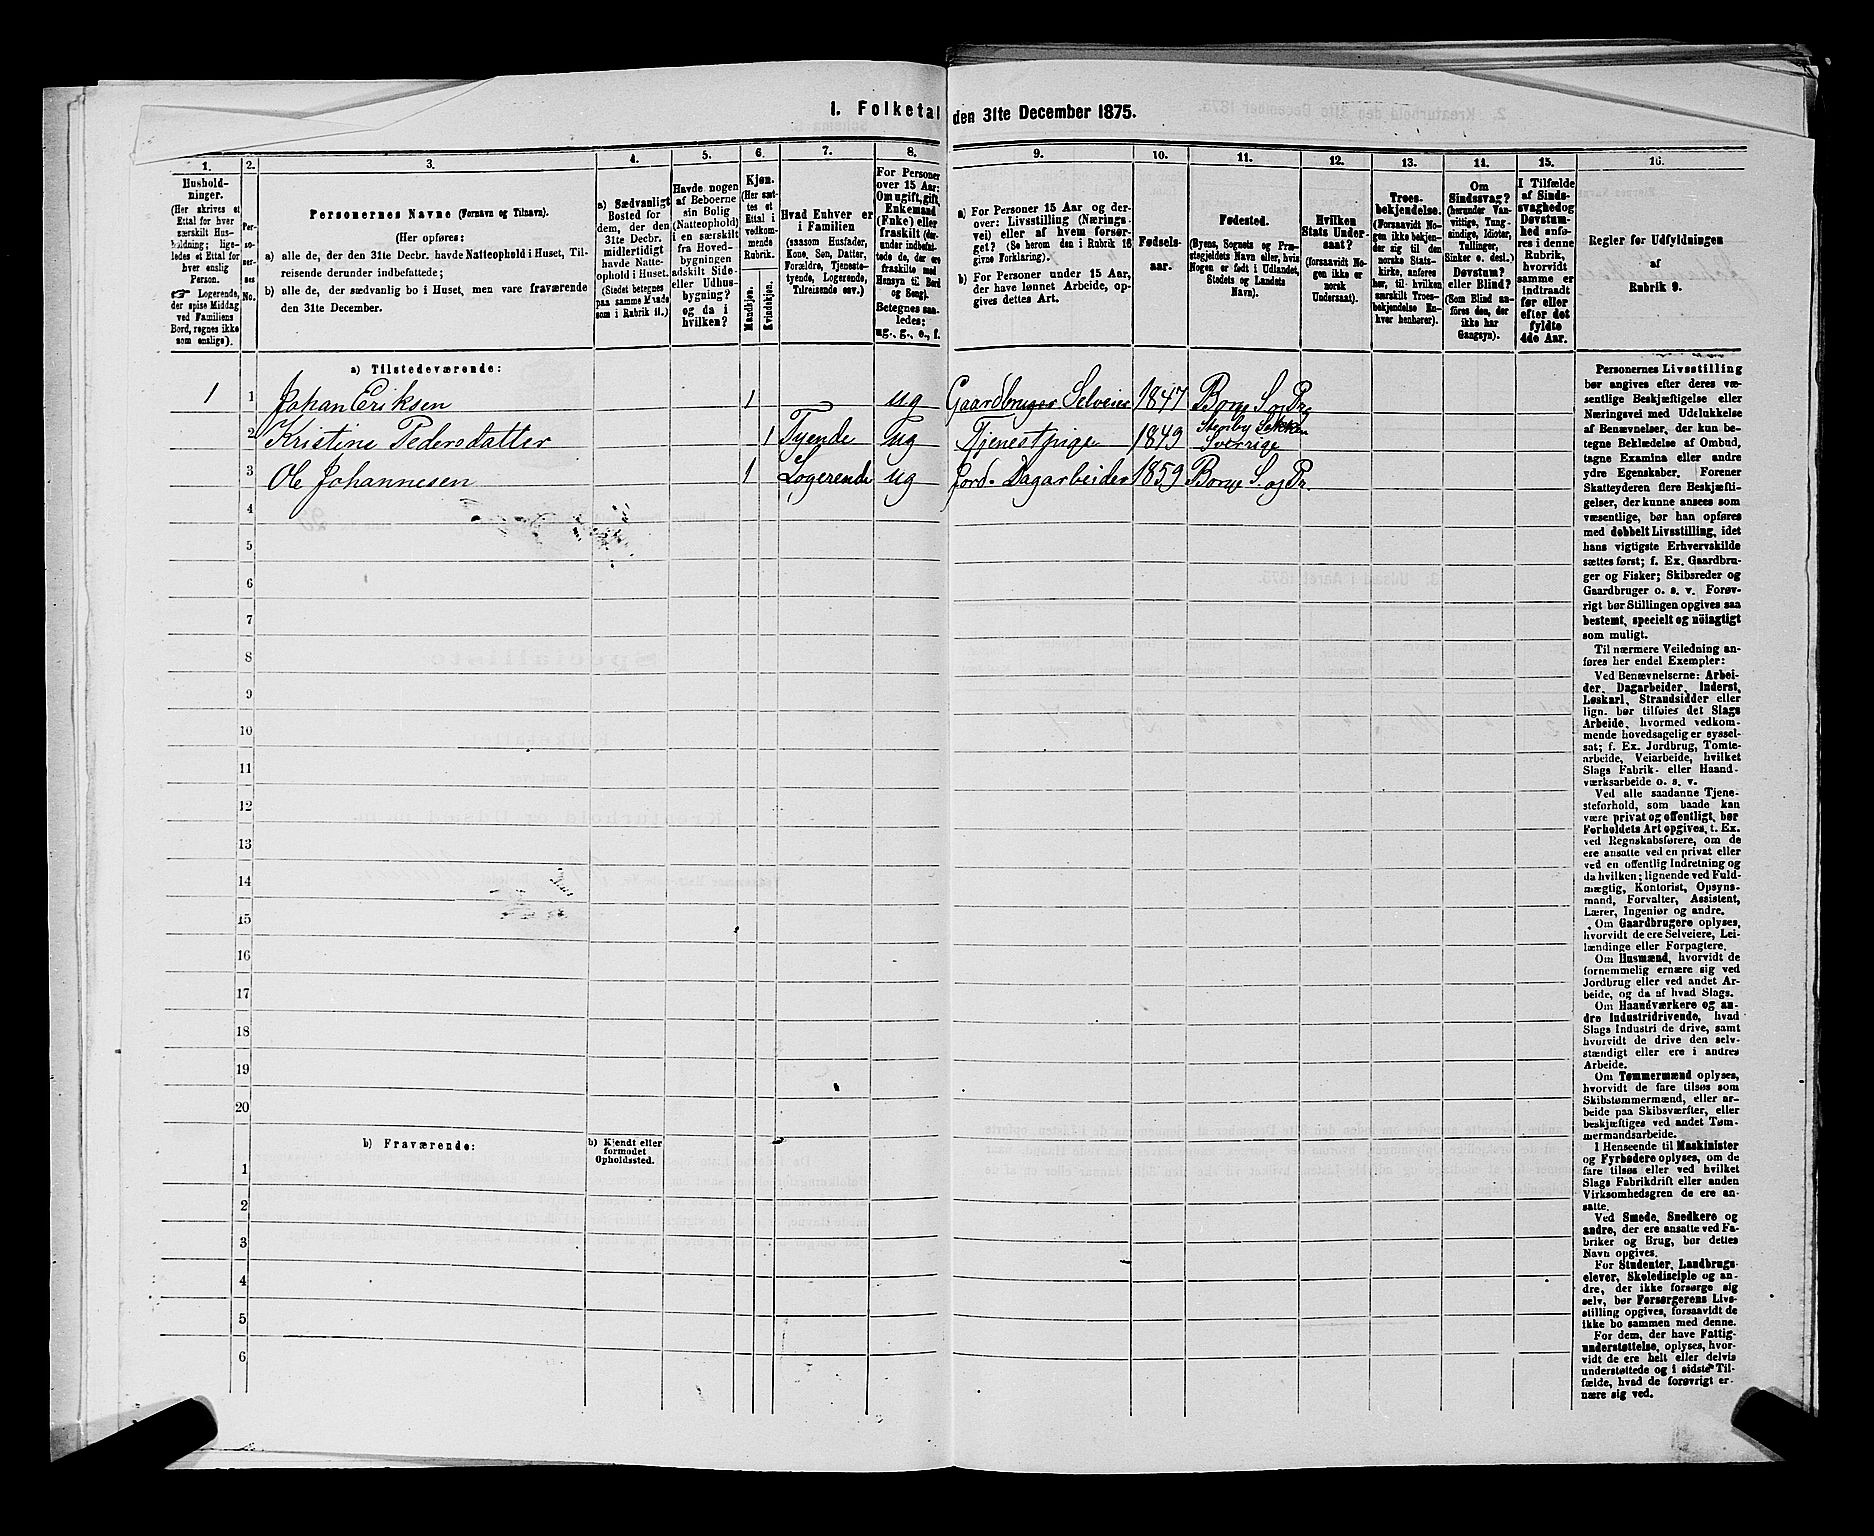 1. Folketal den 31te December 1875.
1. 2. 3. 4. 5. 6. 7. 8. 9. 10. 11. 12. 13. 14. 15. 16.
Hushold-
ninger.
(Her skrives et
Ettal for hver
særskilt Hus-
holdning; lige-
ledes et Ettal for
hver enslig
Person.
☞ Logerende,
der spise Middag
ved Familiens
Bord, regnes ikke
som enslige).
Per-
so-
ner-
nes
No.
Personernes Navne (Fornavn og Tilnavn).
(Her opføres:
a) alle de, der den 31te Decbr. havde Natteophold i Huset, Til-
reisende derunder indbefattede;
b) alle de, der sædvanlig bo i Huset, men vare fraværende
den 31te December.
a) Sædvanligt
Bosted for
dem, der den
31te Decbr.
midlertidigt
havde Natte-
ophold i Huset.
(Stedet betegnes
paa samme Maade
som i Rubrik 11.)
Havde nogen
af Beboerne
sin Bolig
(Natteophold)
i en særskilt
fra Hoved-
bygningen
adskilt Side-
eller Udhus-
bygning?
og da i
hvilken?
Kjøn.
(Her sæt-
tes et
Ettal i
vedkom-
mende
Rubrik.
Mandkjøn.
Kvindekjøn.
Hvad Enhver er
i Familien
(saasom Husfader,
Kone, Søn, Datter,
Forældre, Tjeneste-
tyende, Logerende,
Tilreisende osv.)
For Personer
over 15 Aar:
Om ugift, gift,
Enkemand
(Enke) eller
fraskilt (der-
under indbefat-
tede de, der ere
fraskilte med
Hensyn til Bord
og Seng).
Betegnes saa-
ledes:
ug., g., e., f.
a) For Personer 15 Aar og der-
over: Livsstilling (Nærings-
vei) eller af hvem forsør-
get? (Se herom den i Rubrik 16
givne Forklaring).
b) For Personer under 15 Aar,
der have lønnet Arbeide, op-
gives dettes Art.
Fødsels-
aar.
Fødested.
(Byens, Sognets og Præ-
stegjeldets Navn eller, hvis
Nogen er født i Udlandet,
Stedets og Landets
Navn).
Hvilken
Stats Under-
saat?
(forsaavidt No-
gen ikke er
norsk
Undersaat).
Troes-
bekjendelse.
(Forsaavidt No-
gen ikke bekjen-
der sig til den
norske Stats-
kirke, anføres
her, til hvilken
særskilt Troes-
bekjendelse En-
hver henhører).
Om
Sindssvag?
(herunder Van-
vittige, Tung-
sindige, Idioter,
Tullinger,
Sinker o. desl.)
Døvstum?
eller Blind?
(Som Blind an-
føres den, der
ikke har
Gangsyn).
I Tilfælde
af Sinds-
svaghed og
Døvstum-
hed anfø-
res i denne
Rubrik,
hvorvidt
samme er
indtraadt
før eller
efter det
fyldte
4de Aar.
Regler for Udfyldningen
af
Rubrik 9.
a) Tilstedeværende:
1 1 Johan Eriksen 1 ug Gaardbruger Selveier 1847 Borge S. og Prg
2 Kristine Pedersdatter 1 Tyende ug Tjenestpige 1849 Sverrige
3 Ole Johannesen 1 Logerende ug Jord. Dagarbeider 1859 Borge S. og Pr.
4
5
6
7
8
9
10
11
12
13
14
15
16
17
18
19
20
b) Fraværende:
b) Kjendt eller
formodet
Opholdssted.
1
2
3
4
5
6
Personernes Livsstilling
bør angives efter deres væ-
sentlige Beskjæftigelse eller
Næringsvei med Udelukkelse
af Benævnelser, der kun be-
tegne Beklædelse af Ombud,
tagne Examina eller andre
ydre Egenskaber. Forener
Skatteyderen flere Beskjæfti-
gelser, der kunne ansees som
væsentlige, bør han opføres
med dobbelt Livsstilling, idet
hans vigtigste Erhvervskilde
sættes først; f. Ex. Gaardbru-
ger og Fisker; Skibsreder og
Gaardbruger o. s. v. Forøv-
rigt bør Stillingen opgives saa
bestemt, specielt og nöiagtigt
som muligt.
Til nærmere Veiledning an-
føres her endel Exempler:
Ved Benævnelserne: Arbei-
der, Dagarbeider, Inderst,
Løskarl, Strandsidder eller
lign. bør tilføies det Slags
Arbeide, hvormed vedkom-
mende hovedsagelig er syssel-
sat; f. Ex. Jordbrug, Tomte-
arbeide, Veiarbeide, hvilket
Slags Fabrik- eller Haand-
værksarbeide o. s. v.
Ved alle saadanne Tjene-
steforhold, som baade kan
være privat og offentligt, bør
Forholdets Art opgives, t. Ex.
ved Regnskabsførere, om de
ere ansatte ved en privat eller
ved en offentlig Indretning og
da hvilken; lignende ved Fuld-
mægtig, Kontorist, Opsyns-
mand, Forvalter, Assistent,
Lærer, Ingeniør og andre.
Om Gaardbrugere oplyses,
hvorvidt de ere Selveiere, Lei-
lændinge eller Forpagtere.
Om Husmænd, hvorvidt de
fornemmelig ernære sig ved
Jordbrug eller ved andet Ar-
beide, og da af hvad Slags.
Om Haandværkere og an-
dre Industridrivende, hvad
Slags Industri de drive, samt
hvorvidt de drive den selv-
stændigt eller ere i andres
Arbeide.
Om Tømmermænd oplyses,
hvorvidt de fare tilsøs som
Skibstømmermænd, eller ar-
beide paa Skibsværfter, eller
beskjæftiges ved andet Tøm-
mermandsarbeide.
I Henseende til Maskinister
og Fyrbødere oplyses, om de
fare tilsøs eller ved hvilket
Slags Fabrikdrift eller anden
Virksomhedsgren de ere an-
satte.
Ved Smede, Snedkere og
andre, der ere ansatte ved Fa-
briker og Brug, bør dettes
Navn opgives.
For Studenter, Landbrugs-
elever, Skoledisciple og an-
dre, der ikke forsørge sig
selv, bør Forsørgerens Livs-
stilling opgives, forsaavidt de
ikke bo sammen med denne.
For dem, der have Fattig-
understøttelse, oplyses, hvor-
vidt de ere helt eller delvis
understøttede og i sidste Til-
fælde, hvad de forøvrigt er-
nære sig ved.